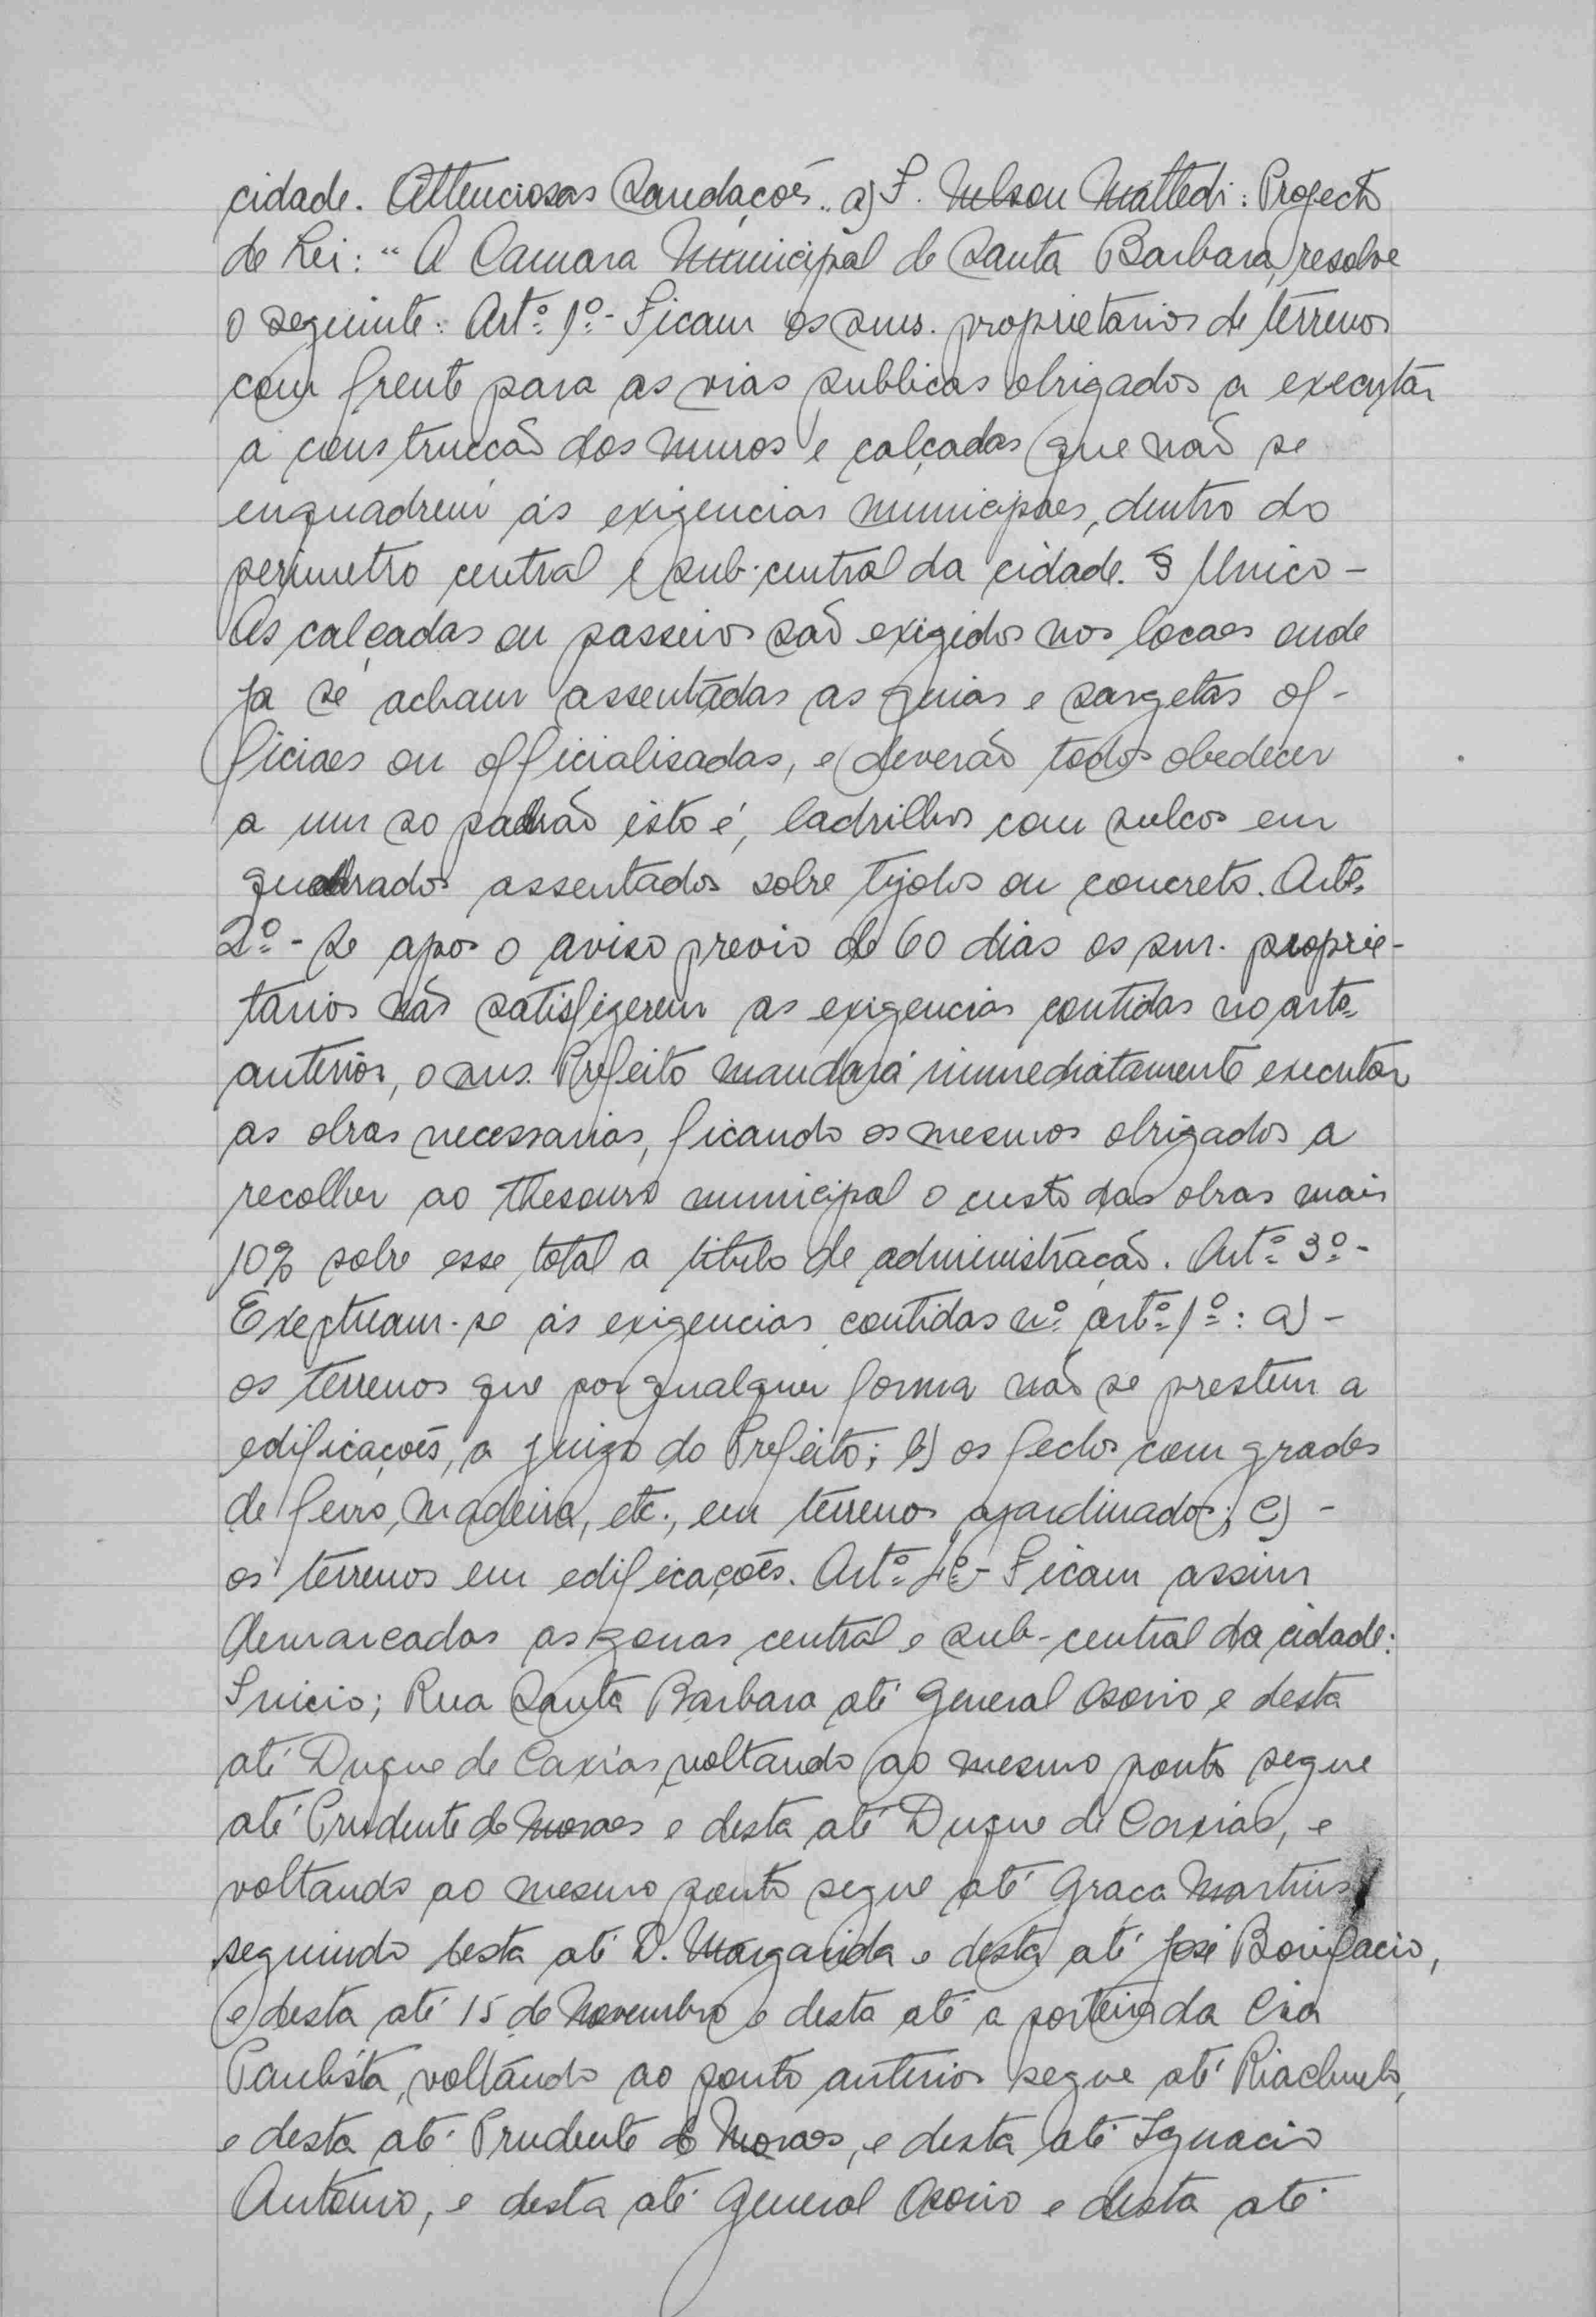 cidade. Attenciosas Saudações.. a) F. Nelson Mattedi: Projecto
de Lei: " A Camara Municipal de Santa Barbara, resolve
o seguinte: Artº 1º- Ficam os snrs. proprietarios de terrenos
com frente para as vias publicas obrigados a executar
a construcção dos muros e calçadas que não se
enquadrem ás exigencias municipaes, dentro do
perimetro central e sub-central da cidade. § Unico -
As calçadas ou passeios são exigidos nos locaes onde
ja se acham assentadas as guias e sargetas of-
ficiaes ou officialisadas, e deverão todos obedecer
a um so padrão isto é, ladrilhos com sulcos em
quadrados assentados sobre tijolos ou concreto. Artº
2º - Se apos o aviso previo de 60 dias os snr. proprie-
tarios não satisfizerem as exigencias contidas no artº
anterior, o snr. Prefeito mandará immediatamente executar
as obras necessarias, ficando os mesmos obrigados a
recolher ao thesouro municipal o custo das obras mais
10% sobre esse total a titulo de administração. Artº 3º-
Exeptuam-se ás exigencias contidas nº artº 1º: a) -
os terrenos que por qualquer forma não se prestem a
edificações, a juizo do Prefeito; b) os fechos com grades
de ferro, madeira, etc., em terrenos ajardinados; c) -
os terrenos em edificações. Artº 4º- Ficam assim
demarcadas as zonas central e sub-central da cidade:
Inicio; Rua Santa Barbara até General Osorio e desta
até Duque de Caxias voltando ao mesmo ponto segue
até Prudente de Moraes e desta até Duque de Caxias, e
voltando ao mesmo ponto segue até Graça Martins
seguindo desta até D. Margarida e desta até José Bonifacio,
e desta até 15 de Novembro e desta até a porteira da Cia
Paulista, voltando ao ponto anterior segue até Riachuelo,
e desta até Prudente de Moraes, e desta até Ignacio
Antonio, e desta até General Osorio e desta até